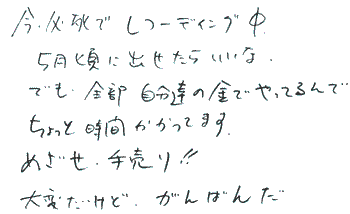 今、必死でレコーディング中
5月頃に出せたらいいな。
でも、全部自分達の金でやってるんで
ちょっと時間かかってます。
めざせ、手売り!!
大変だけど、がんばんだ